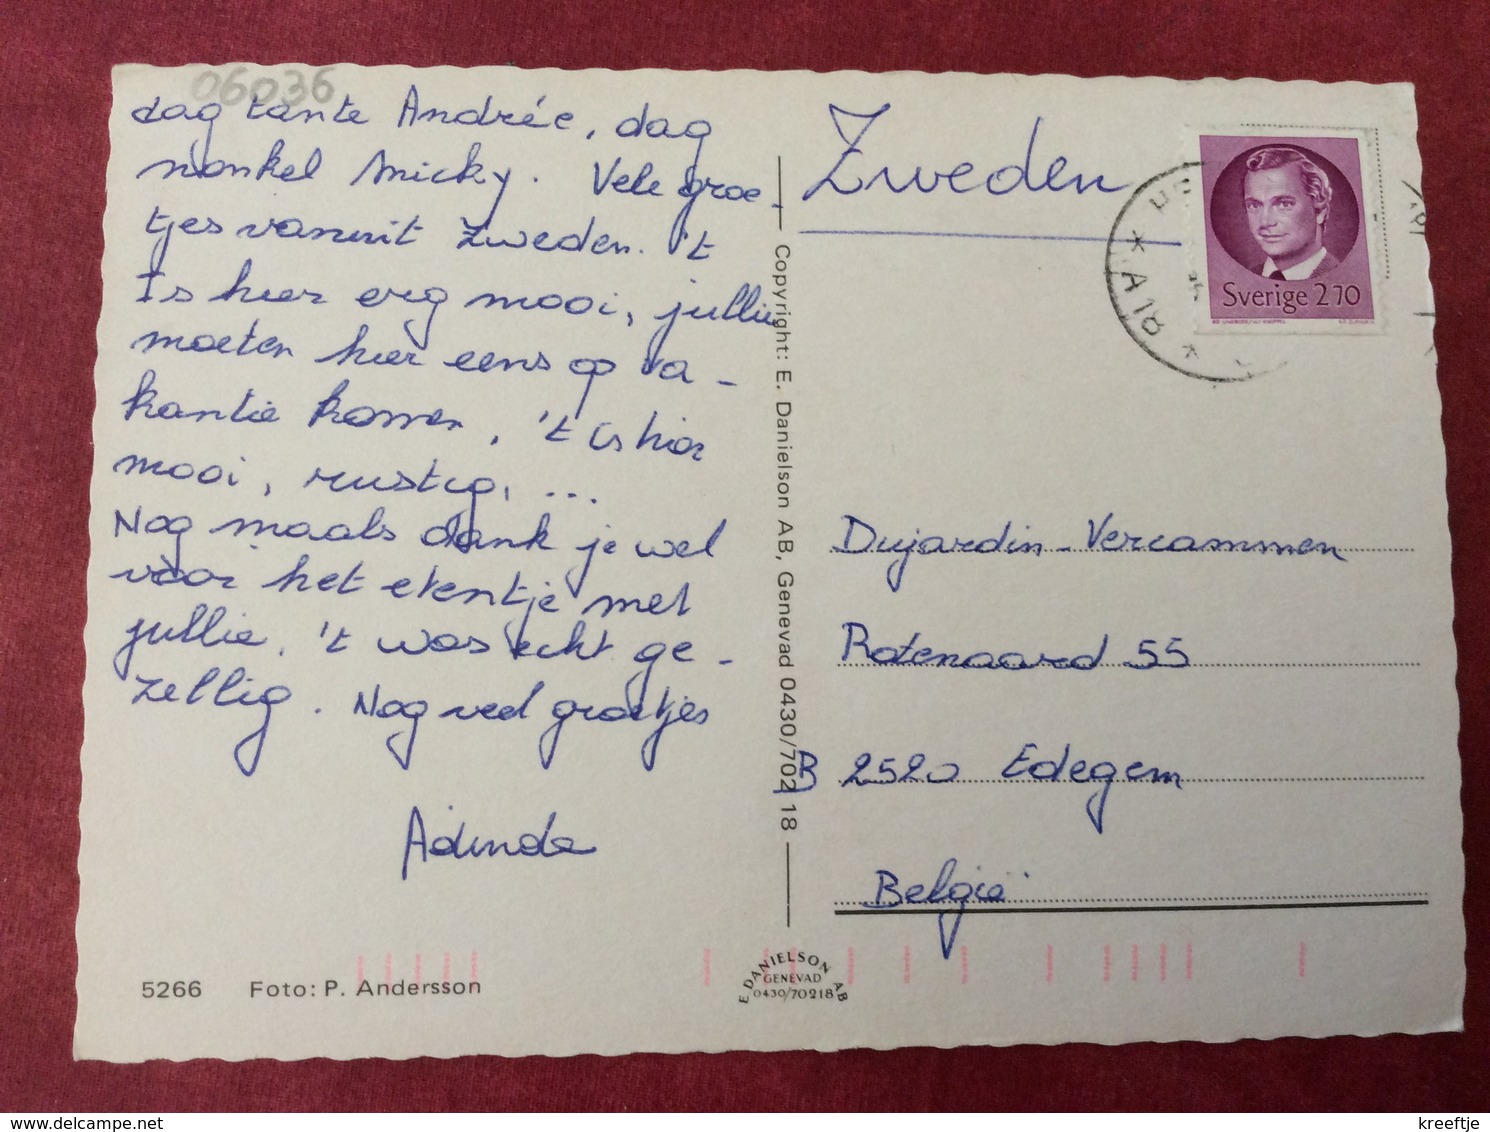 06036
dag tante Andrée, dag
nonkel Micky. Vele groe-
tjes vanuit Zweden. 't
Is hier erg mooi, jullie
moeten hier eens op va-
kantie komen, 't is hier
mooi, rustig, ...
Nog maals dank je wel
voor het etentje met
jullie, 't was echt ge-
zellig. Nog veel groetjes
Adinda
5266 Foto: P. Andersson
Copyright: E. Danielson AB, Genevad 0430/702 18
E DANIELSON AB
GENEVAD
0430/70218
Zweden
Sverige 270
Dujardin-Vercammen
Rotenaard 55
B 2520 Edegem
België
kreeftje